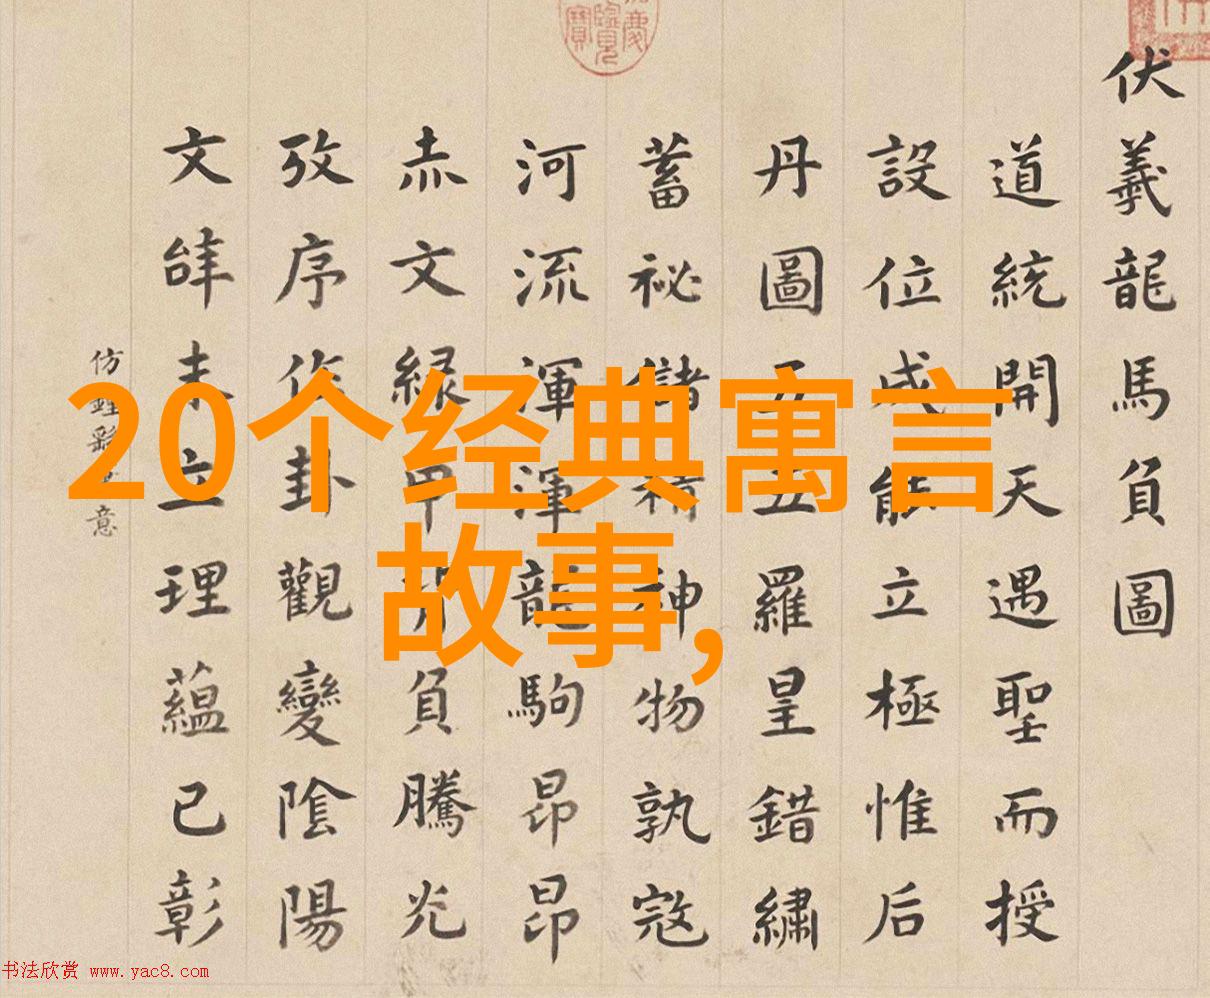 伏羲龍馬負圖
道統開天遇聖而授
設位成能立極惟后
丹圖五五羅皇錯繡
蓄祕儲精神物孰寇
河流渾渾龍駒昂昂
赤文緑甲負騰光
攷序作卦觀變陰陽
文皣未立理蘊已彰
仿意
20个经典寓言
故事,
书法欣赏 www.yac8.com